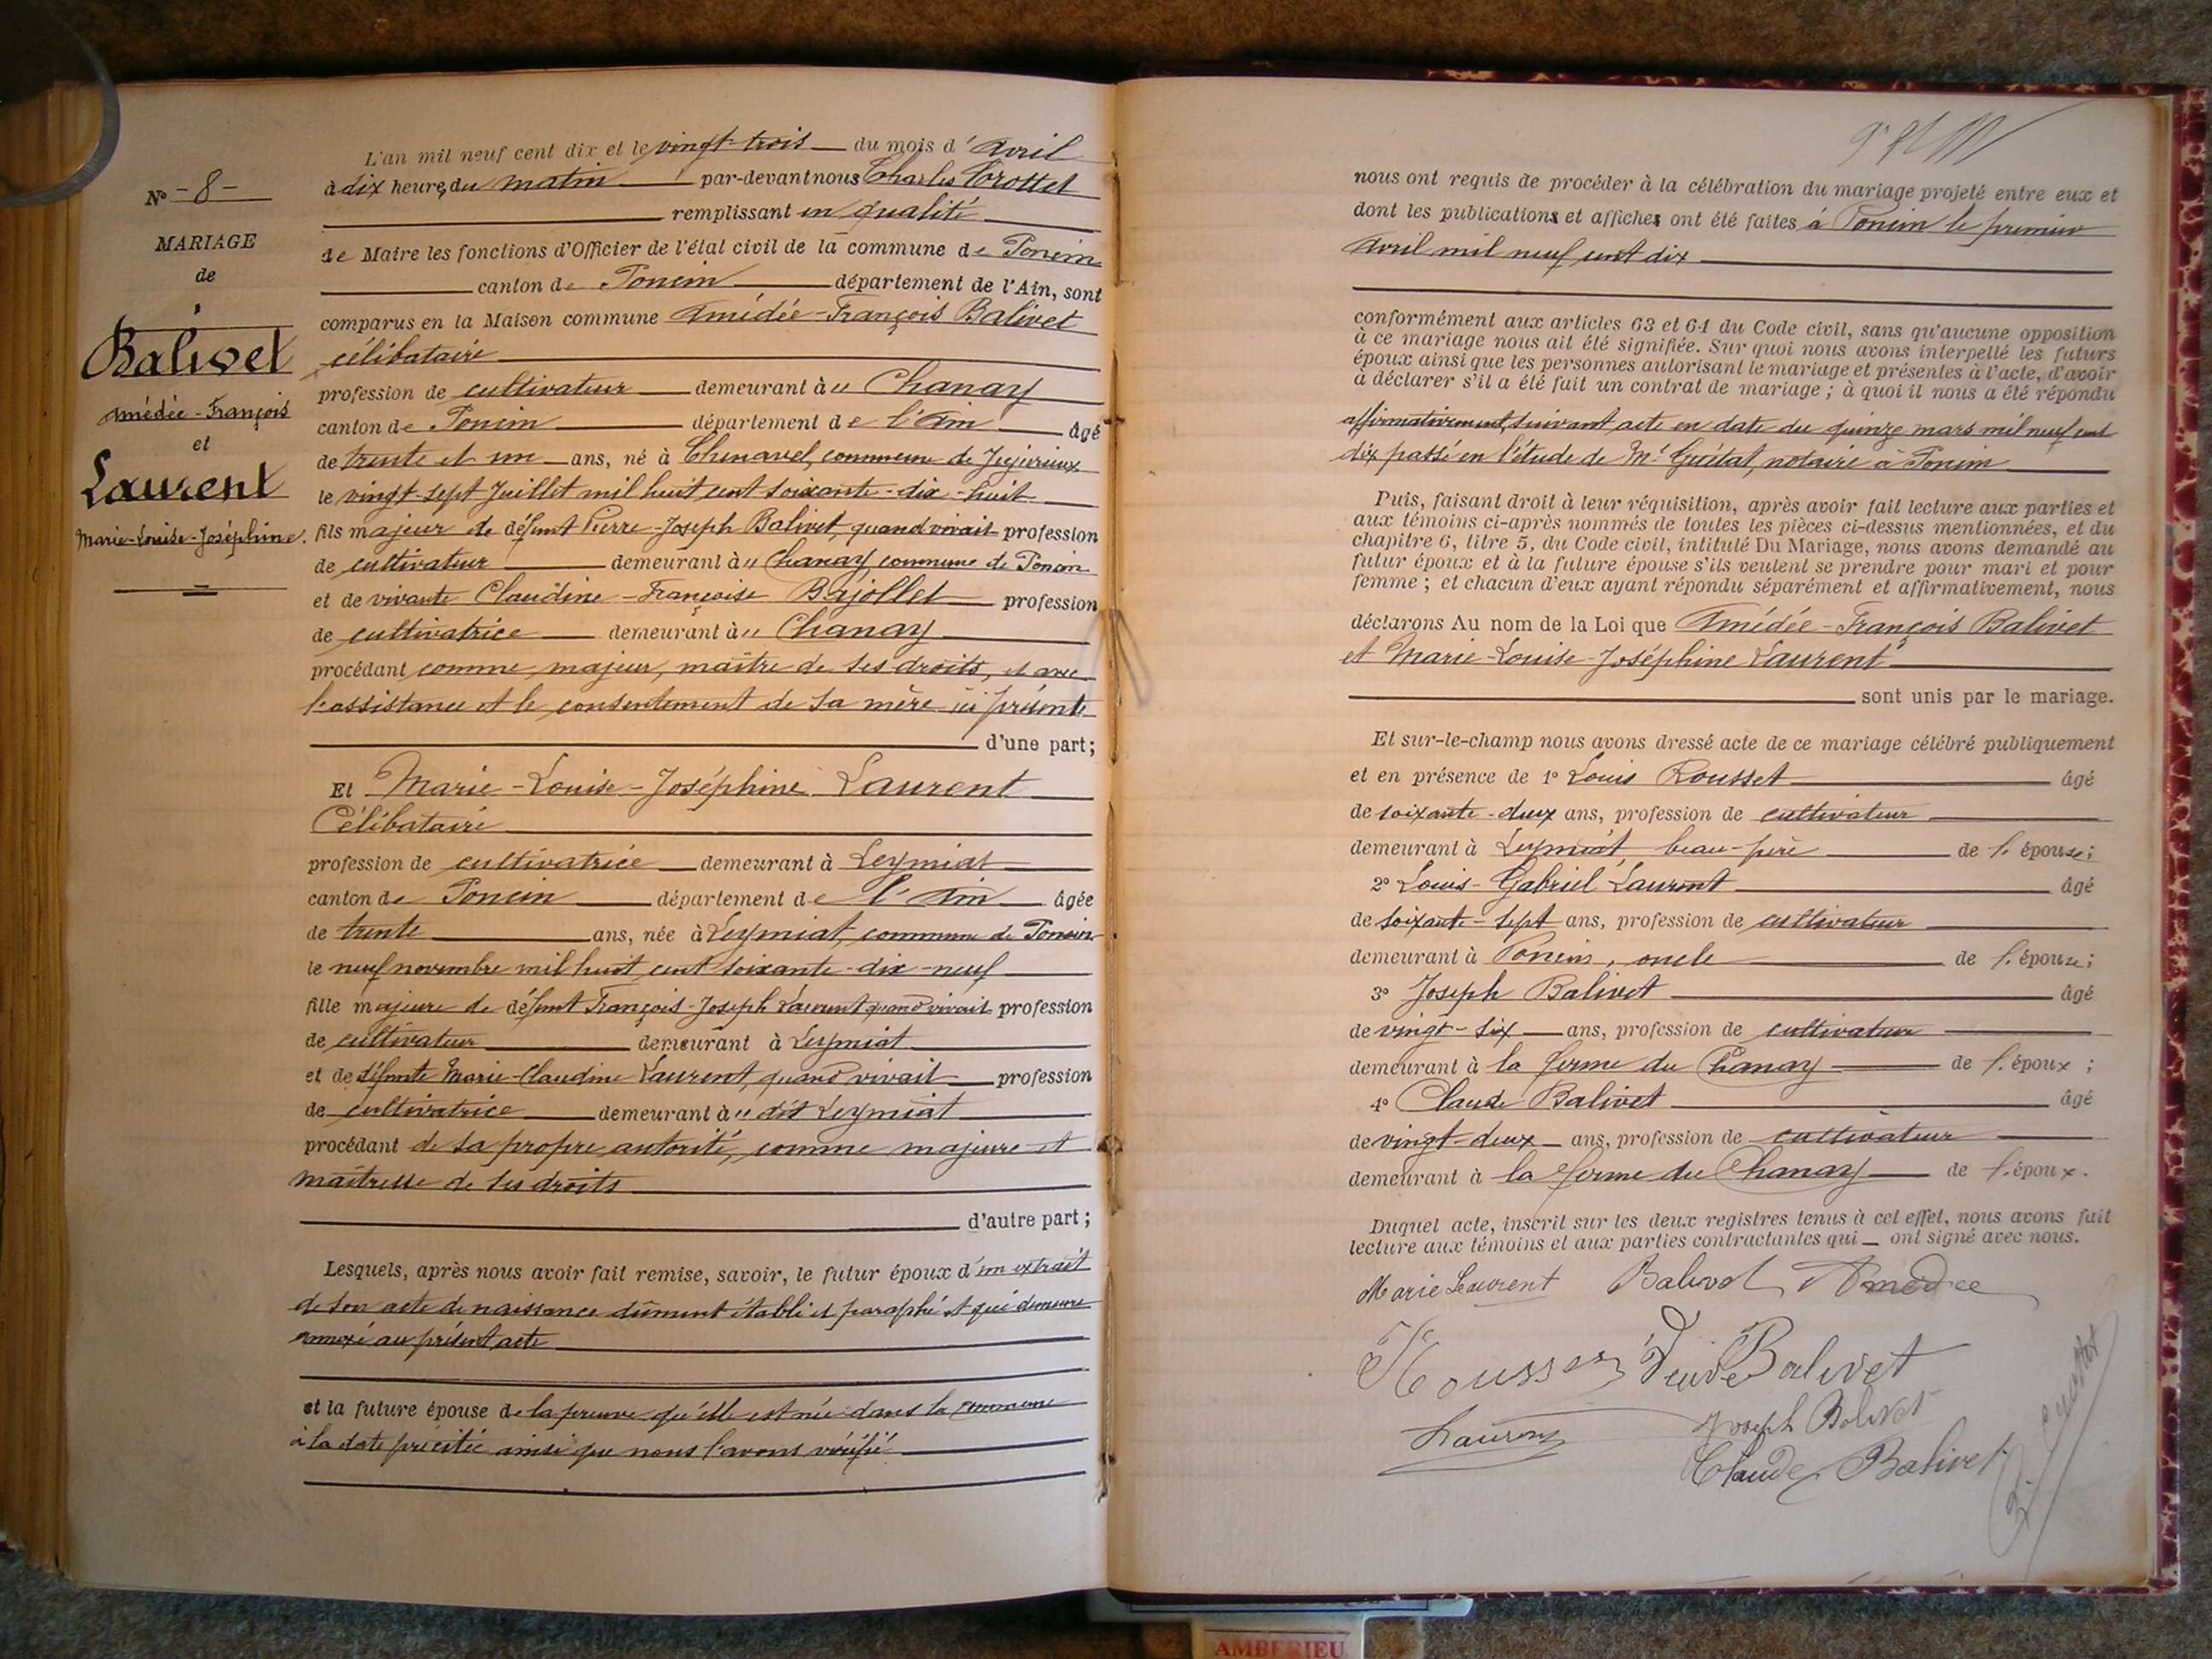 N° - 8 -
MARIAGE
de
Balivet
Amédée-François
et
Laurent
Marie-Louise-Joséphine.
L'an mil neuf cent dix et le vingt-trois du mois d'Avril
à dix heures du matin par-devant nous Charles Crottet
remplissant en qualité
de Maire les fonctions d'Officier de l'état civil de la commune de Poncin
canton de Poncin département de l'Ain, sont
comparus en la Maison commune Amédée-François Balivet
célibataire
profession de cultivateur demeurant à " Chanay
canton de Poncin département de l'Ain âgé
de trente et un ans, né à Chenavel, commune de Jujurieux
le vingt-sept Juillet mil huit cent soixante-dix-huit
fils majeur de défunt Pierre-Joseph Balivet, quand vivait profession
de cultivateur demeurant à " Chanay, commune de Poncin
et de vivante Claudine-Françoise Bajollet profession
de cultivatrice demeurant à " Chanay
procédant comme majeur, maître de ses droits, et avec
l'assistance et le consentement de sa mère ici présente
d'une part;
Et Marie-Louise-Joséphine Laurent
Célibataire
profession de cultivatrice demeurant à Leymiat
canton de Poncin département de l'Ain âgée
de trente ans, née à Leymiat, commune de Poncin
le neuf novembre mil huit cent soixante-dix-neuf
fille majeure de défunt François-Joseph Laurent quand vivait profession
de cultivateur demeurant à Leymiat
et de défunte Marie-Claudine Laurent, quand vivait profession
de cultivatrice demeurant à " dit Leymiat
procédant de sa propre autorité, comme majeure et
maîtresse de ses droits
d'autre part;
Lesquels, après nous avoir fait remise, savoir, le futur époux d'un extrait
de son acte de naissance dûment établi et paraphé et qui demeure
annexé au présent acte
et la future épouse de la preuve qu'elle est née dans la commune
à la date précitée ainsi que nous l'avons vérifié
nous ont requis de procéder à la célébration du mariage projeté entre eux et
dont les publications et affiches ont été faites à Poncin le premier
Avril mil neuf cent dix
conformément aux articles 63 et 64 du Code civil, sans qu'aucune opposition
à ce mariage nous ait été signifiée. Sur quoi nous avons interpellé les futurs
époux ainsi que les personnes autorisant le mariage et présentes à l'acte, d'avoir
à déclarer s'il a été fait un contrat de mariage ; à quoi il nous a été répondu
affirmativement, suivant acte en date du quinze mars mil neuf cent
dix passé en l'étude de Me Guétat, notaire à Poncin
Puis, faisant droit à leur réquisition, après avoir fait lecture aux parties et
aux témoins ci-après nommés de toutes les pièces ci-dessus mentionnées, et du
chapitre 6, titre 5, du Code civil, intitulé Du Mariage, nous avons demandé au
futur époux et à la future épouse s'ils veulent se prendre pour mari et pour
femme ; et chacun d'eux ayant répondu séparément et affirmativement, nous
déclarons Au nom de la Loi que Amédée-François Balivet
et Marie-Louise-Joséphine Laurent
sont unis par le mariage.
Et sur-le-champ nous avons dressé acte de ce mariage célébré publiquement
et en présence de 1° Louis Rousset âgé
de soixante-deux ans, profession de cultivateur
demeurant à Leymiat beau-père de l'épouse;
2° Louis-Gabriel Laurent âgé
de soixante-sept ans, profession de cultivateur
demeurant à Poncin, oncle de l'épouse;
3° Joseph Balivet âgé
de vingt-six ans, profession de cultivateur
demeurant à la ferme du Chanay de l'époux ;
4° Claude Balivet âgé
de vingt-deux ans, profession de cultivateur
demeurant à la ferme du Chanay de l'époux.
Duquel acte, inscrit sur les deux registres tenus à cet effet, nous avons fait
lecture aux témoins et aux parties contractantes qui ont signé avec nous.
Marie Laurent Balivet Amédée
Rousset Veuve Balivet
Laurent Joseph Balivet
Claude Balivet
AMBERIEU